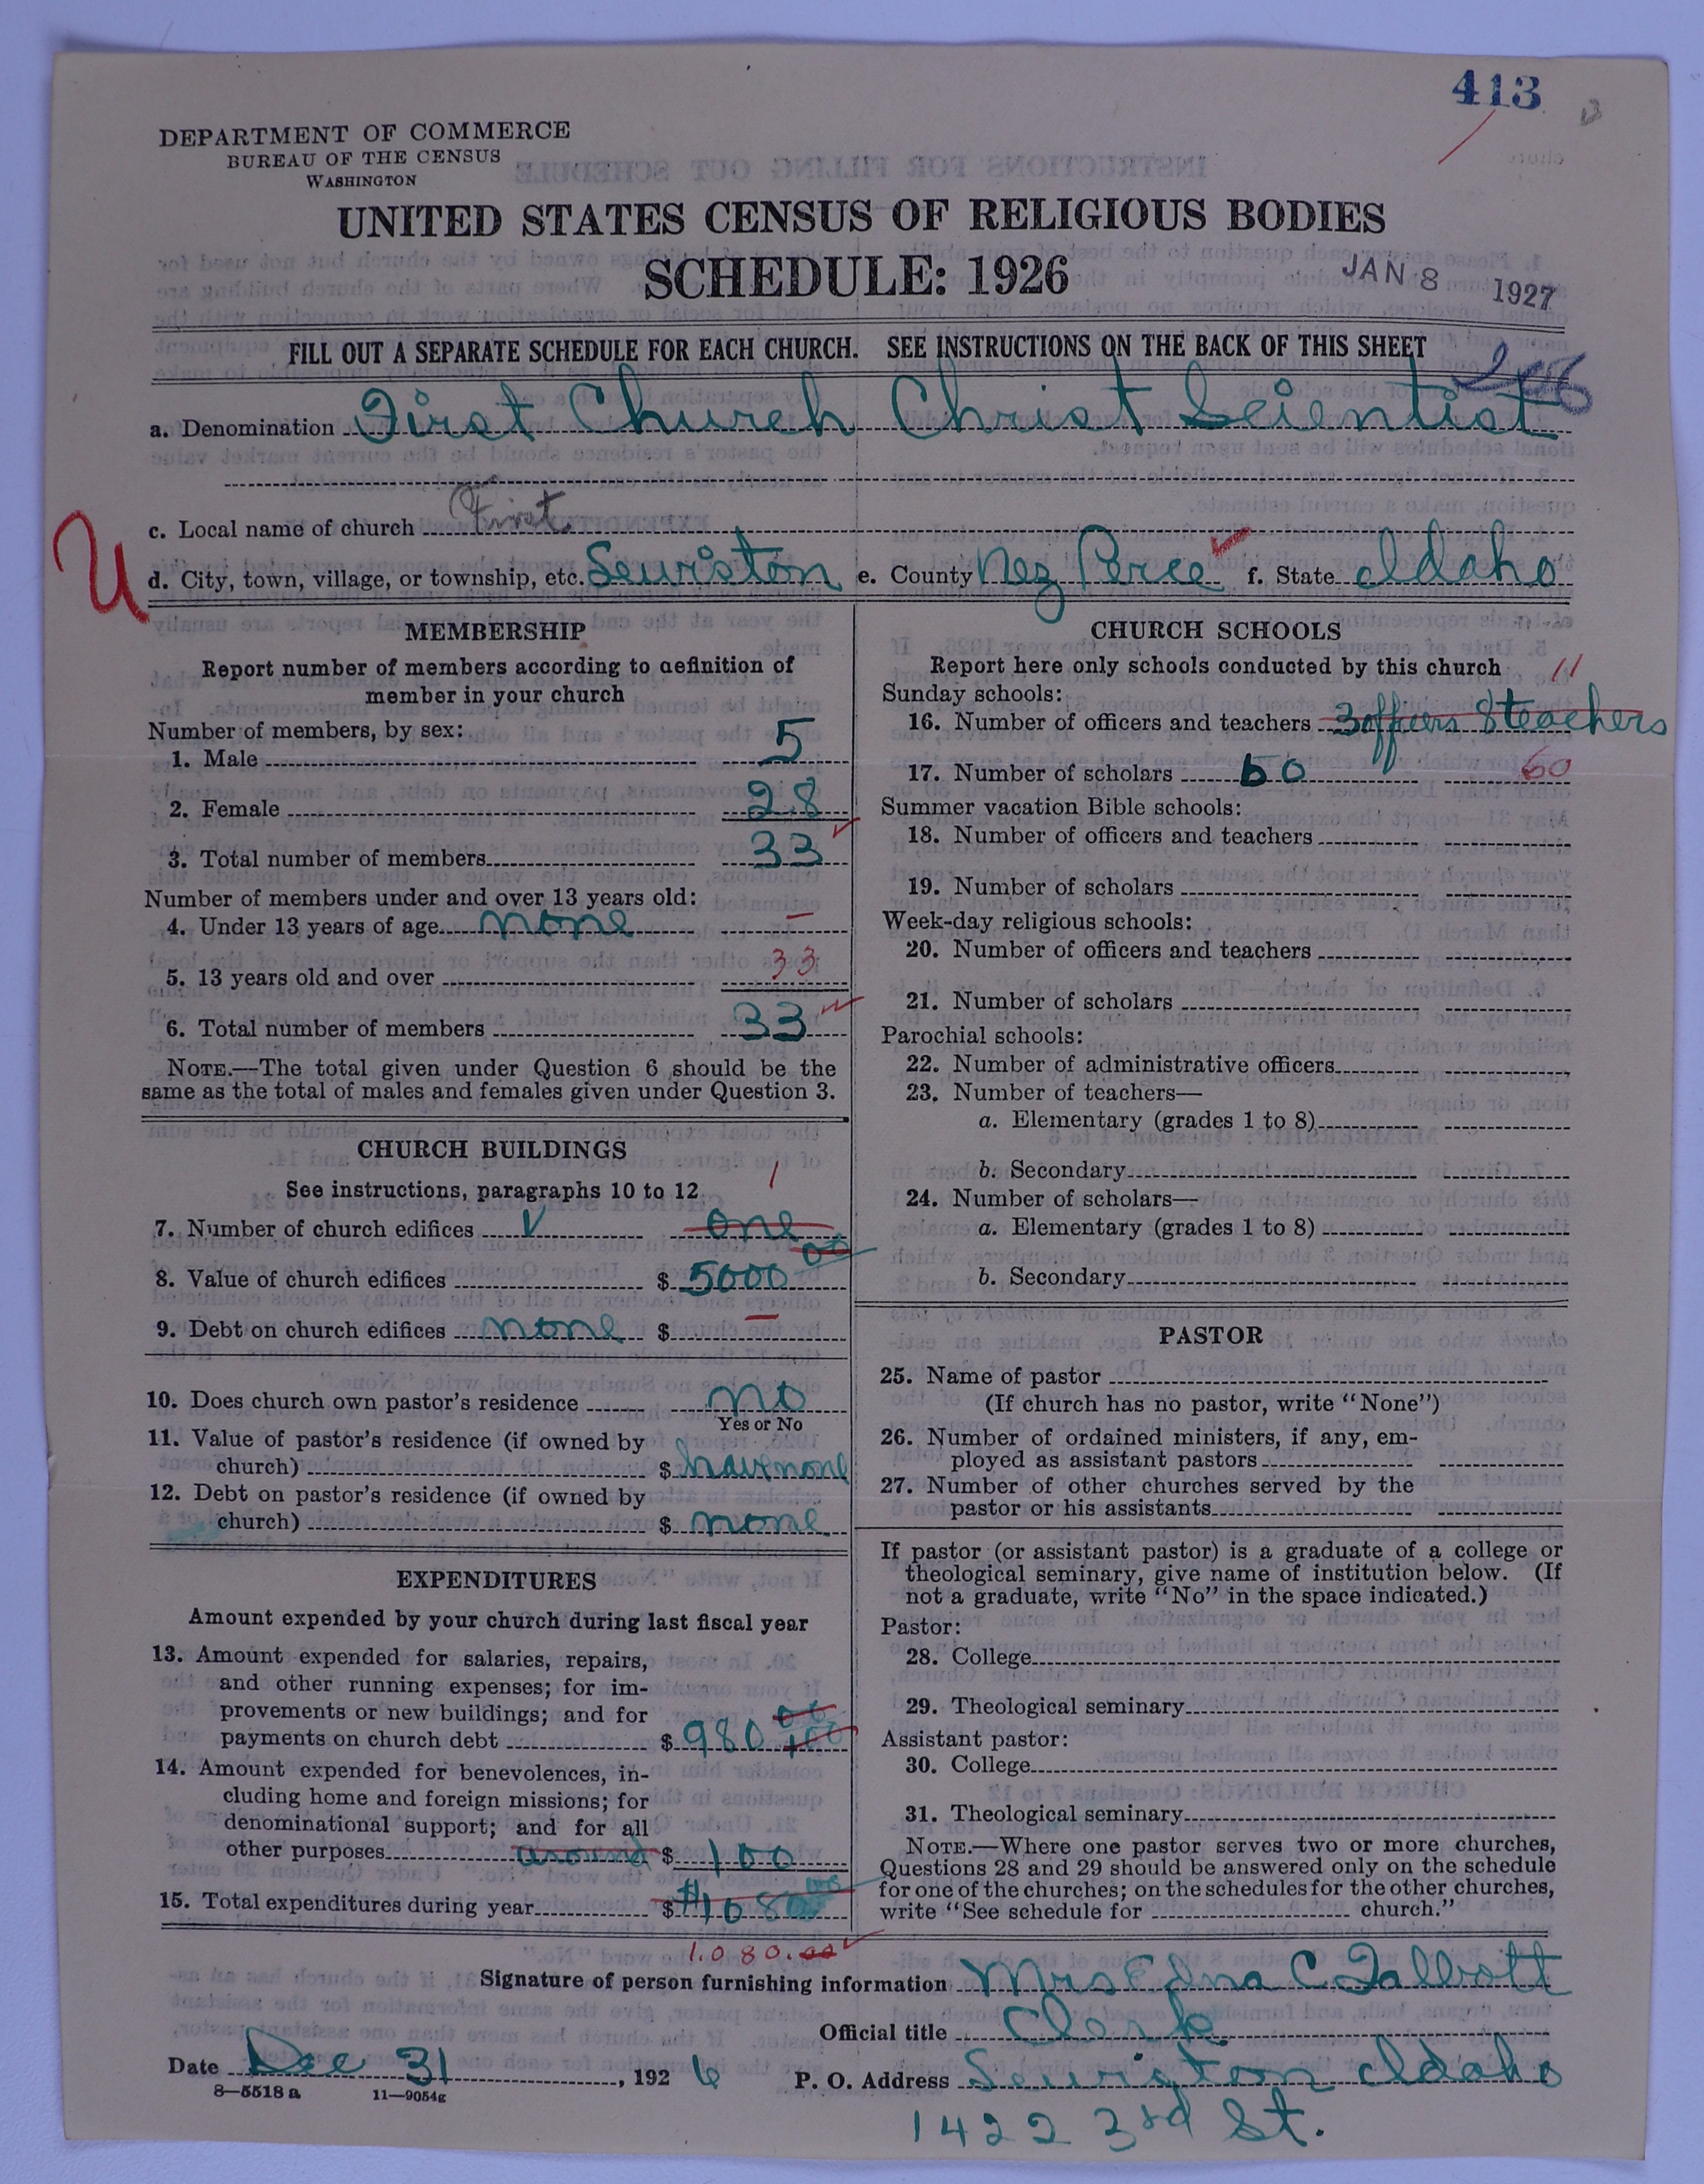 413
DEPARTMENT OF COMMERCE
BUREAU OF THE CENSUS
WASHINGTON
UNITED STATES CENSUS OF RELIGIOUS BODIES
SCHEDULE: 1926
JAN 8 1927
FILL OUT A SEPARATE SCHEDULE FOR EACH CHURCH. SEE INSTRUCTIONS ON THE BACK OF THIS SHEET
a. Denomination First Church Christ Scientist
c. Local name of church First
U
d. City, town, village, or township, etc. Lewiston e. County Nez Perce f. State Idaho
MEMBERSHIP
Report number of members according to definition of
member in your church
Number of members, by sex:
1. Male 5
2. Female 28
3. Total number of members 33
Number of members under and over 13 years old:
4. Under 13 years of age none –
5. 13 years old and over 33
6. Total number of members 33
NOTE.—The total given under Question 6 should be the
same as the total of males and females given under Question 3.
CHURCH BUILDINGS
See instructions, paragraphs 10 to 12 1
7. Number of church edifices one
8. Value of church edifices $ 5000 00
9. Debt on church edifices none $ –
10. Does church own pastor's residence no
Yes or No
11. Value of pastor's residence (if owned by
church) $ have none
12. Debt on pastor's residence (if owned by
church) $ none
EXPENDITURES
Amount expended by your church during last fiscal year
13. Amount expended for salaries, repairs,
and other running expenses; for im-
provements or new buildings; and for
payments on church debt $ 980 00
14. Amount expended for benevolences, in-
cluding home and foreign missions; for
denominational support; and for all
other purposes around $ 100
15. Total expenditures during year $ $1080
1.080.00
CHURCH SCHOOLS
Report here only schools conducted by this church 11
Sunday schools:
16. Number of officers and teachers 3 officers 8 teachers
17. Number of scholars 60 60
Summer vacation Bible schools:
18. Number of officers and teachers
19. Number of scholars
Week-day religious schools:
20. Number of officers and teachers
21. Number of scholars
Parochial schools:
22. Number of administrative officers
23. Number of teachers—
a. Elementary (grades 1 to 8)
b. Secondary
24. Number of scholars—
a. Elementary (grades 1 to 8)
b. Secondary
PASTOR
25. Name of pastor
(If church has no pastor, write "None")
26. Number of ordained ministers, if any, em-
ployed as assistant pastors
27. Number of other churches served by the
pastor or his assistants
If pastor (or assistant pastor) is a graduate of a college or
theological seminary, give name of institution below. (If
not a graduate, write "No" in the space indicated.)
Pastor:
28. College
29. Theological seminary
Assistant pastor:
30. College
31. Theological seminary
NOTE.—Where one pastor serves two or more churches,
Questions 28 and 29 should be answered only on the schedule
for one of the churches; on the schedules for the other churches,
write "See schedule for church."
Signature of person furnishing information Mrs Edna C. Talbott
Official title Clerk
Date Dec 31, 1926 P. O. Address Lewiston Idaho
8—5518 a 11—9054g
1422 3rd St.